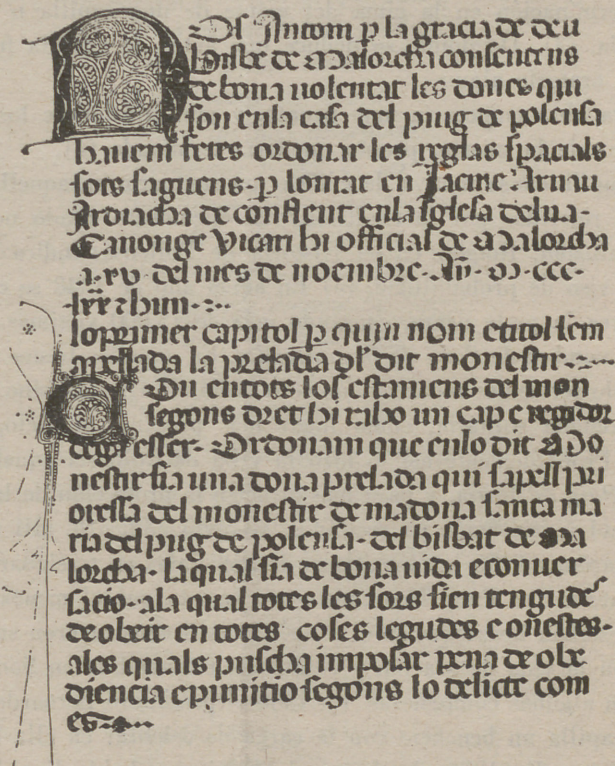 NOs Antoni p la gracia de deu
Bisbe de Malorcha consentens
de bona uolentat les dones qui
son enla casa del puig de polensa
hauem fetes ordonar les reglas spacials
sots saguens· p lonrat en Jacme Arnau
Ardiacha de conflent enla sglesa delua·
Canonge Vicari hi official de Malorcha
a·xv· del mes de noembre· Añ· m· ccc·
lxx ⁊ hun·
lo primer capitol p quin nom e titol sem
apellada la preladia dl dit monestir·
COn en tots los estamens del mon
segons dret hi raho un cap e regidor
dega esser· Ordonam que enlo dit Mo
nestir sia una dona prelada qui sapell pri
oressa del monestir de madona santa ma
ria del puig de polensa· del bisbat de Ma
lorcha· la qual sia de bona uida e conuer
sacio· ala qual totes les sors sien tengudes
de obeir en totes coses legudes e onestes·
ales quals puscha imposar pena de obe
diencia e punitio segons lo delicte com
es·